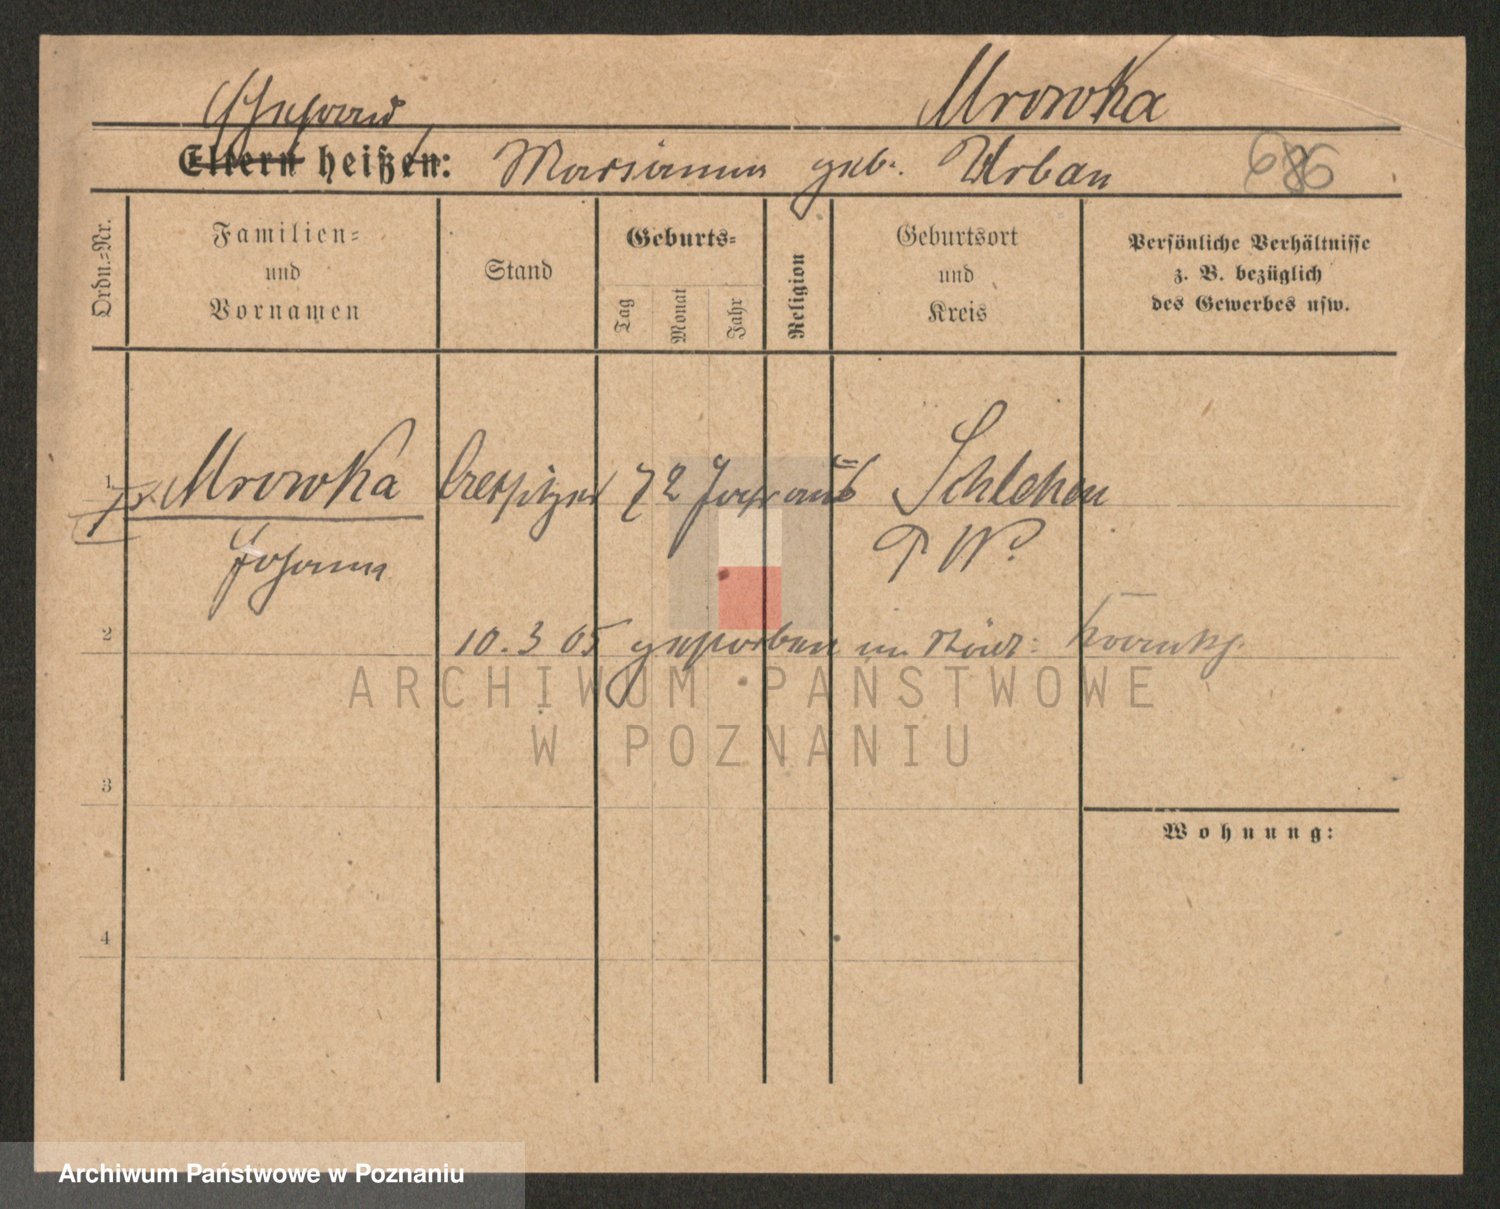 Ehefrau Mrowka
Eltern heißen: Marianna geb. Urban 686
Ordn.-Nr.
Familien-
und
Vornamen
Stand
Geburts-
Tag
Monat
Jahr
Religion
Geburtsort
und
Kreis
Persönliche Verhältnisse
z. B. bezüglich
des Gewerbes usw.
1
Mrowka Besitzer 72 Jahr aus Schlehen
Johann P W.
2
10. 3 05 gestorben im Städt: Krankh.
ARCHIWUM PAŃSTWOWE
W POZNANIU
3
Wohnung:
4
Archiwum Państwowe w Poznaniu